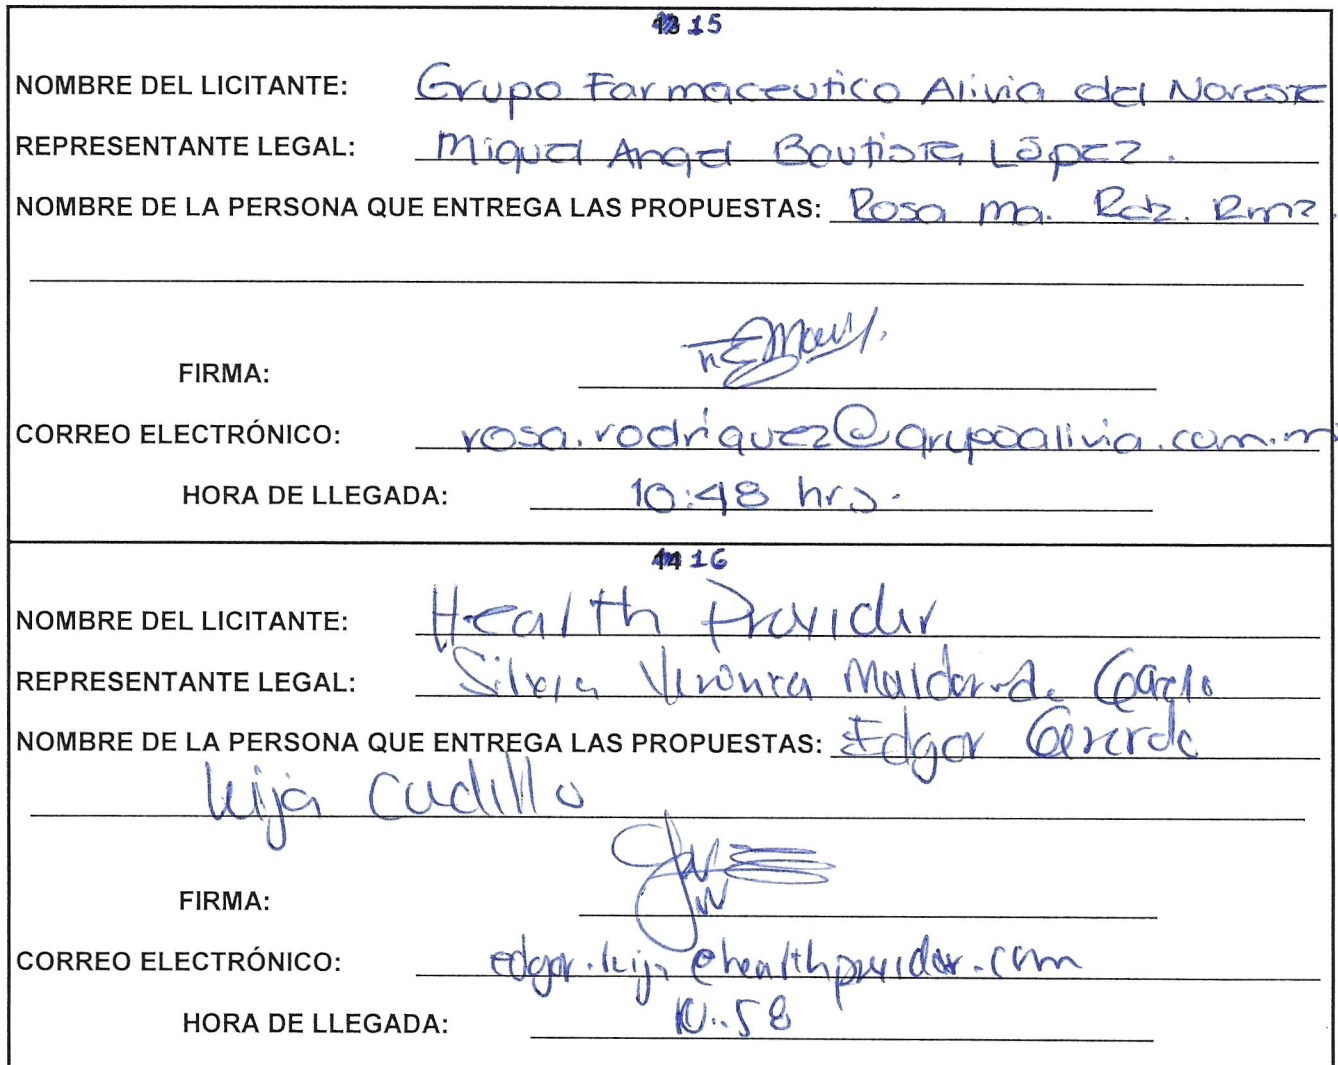 15
NOMBRE DEL LICITANTE: Grupo Farmaceutico Alivia del Noreste
REPRESENTANTE LEGAL: Miguel Angel Bautista López.
NOMBRE DE LA PERSONA QUE ENTREGA LAS PROPUESTAS: Rosa Ma. Rdz. Rmz.
FIRMA:
CORREO ELECTRÓNICO: rosa.rodriguez@grupoalivia.com.m
HORA DE LLEGADA: 10:48 hrs.
16
NOMBRE DEL LICITANTE: Health Provider
REPRESENTANTE LEGAL: Silvia Veronica Maldonado
NOMBRE DE LA PERSONA QUE ENTREGA LAS PROPUESTAS: Edgar Gerardo
FIRMA:
CORREO ELECTRÓNICO:
HORA DE LLEGADA: 10:58